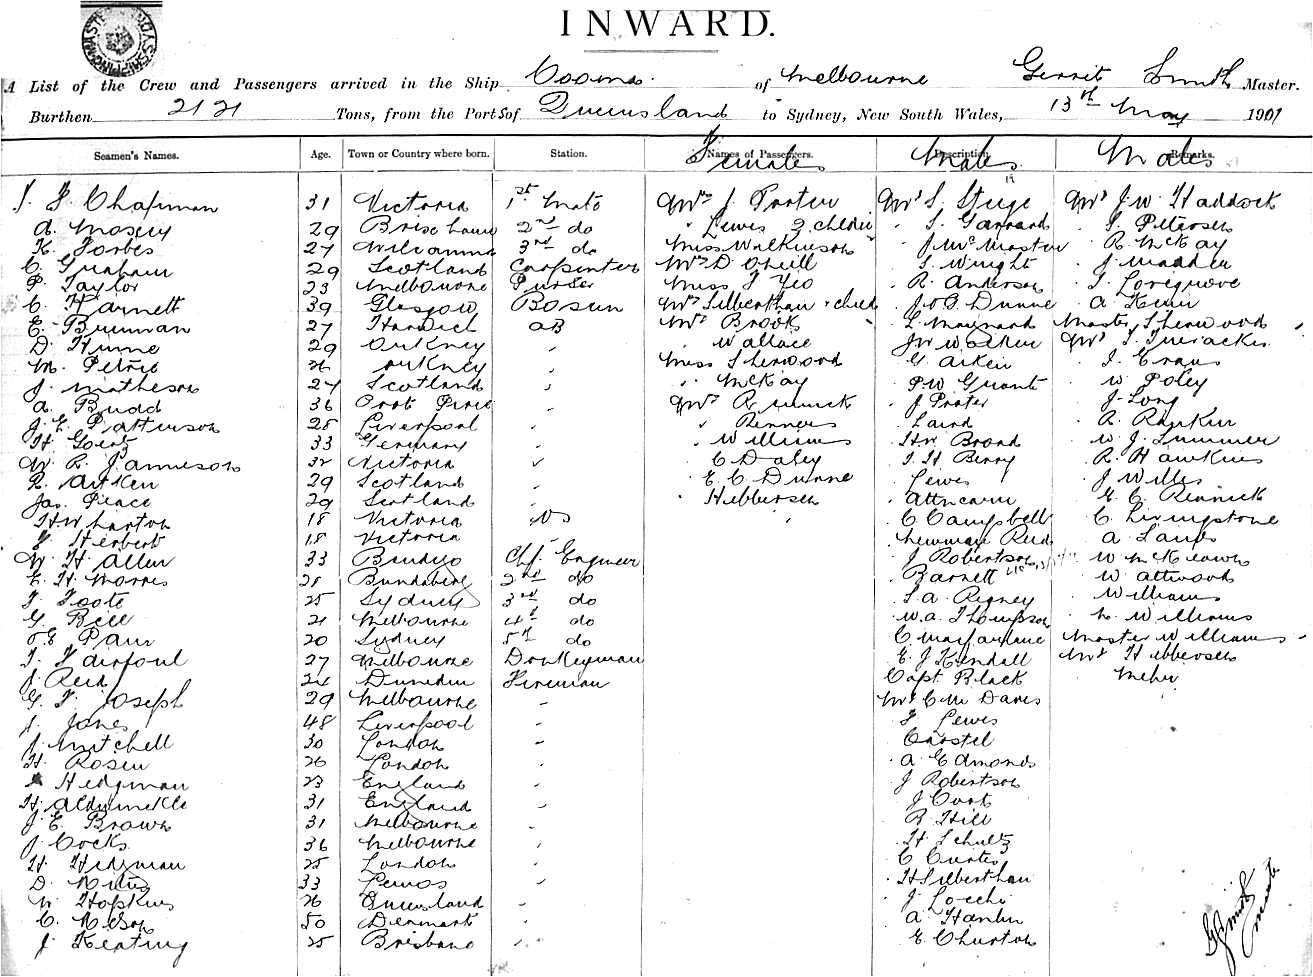 INWARD.
A List of the Crew and Passengers arrived in the Ship Cooma. of Melbourne Gerrit Smith Master.
Burthen 2121 Tons, from the Ports of Queensland to Sydney, New South Wales, 13th May 1901
Seamen's Names. Age. Town or Country where born. Station. Names of Passengers. Females Description. Males Remarks. Males
J. F. Chapman 31 Victoria 1st Mate Mrs J. Porter Mr S. Stuge Mr J. W. Haddock
A. Mosey 29 Brisbane 2nd do Lewis 2 children S. Garrard S. Petersen
K. Forbes 27 3rd do Miss Wilkinson J McMaster R. McKay
C. Graham 29 Scotland Carpenter Mrs D. ONeill S. Wright J Madder
P. Taylor 23 Melbourne Purser Miss J Yeo R. Anderson J. Loregrove
C. Harnett 39 Glasgow Bosun Mrs Silberthau & child J. & G. Dunne A
E. Buman 27 Harwich AB Mrs Brook L. Maynard Master Sherwood
D. Hume 29 Orkney Wallace J W Walker Mr S.
M. Petrie 26 Orkney Miss Sherwood G. Aitken J. Evans
J. Matheson 27 Scotland McKay P W Grant W Poley
A. Budd 36 Port Pirie Mrs Rennick J Prater J. Long
J. E. Patterson 28 Liverpool Rennees Laird R. Rankin
H. Goertz 33 Germany Williams H W Broad W. J. Summer
W R. Jamieson 32 Victoria C Daley J. H Berry R. Hawkins
R. Aitken 29 Scotland E. C. Dunne Lewis J Willes
Jas. Peace 29 Scotland Hebbersen E. C. Rennick
H. Wharton 18 Victoria OS C Campbell C. Livingstone
F Herbert 18 Victoria Newman Reid A Laws
W. H. Allen 33 Bendigo Chf. Engineer J Robertson W McKeown
E. H. Morris 28 Bundaberg 2nd do Barnett W Attwood
J. Foote 25 Sydney 3rd do S. A. Rigney Williams
G. Bell 21 Melbourne 4th do W. A. Thompson L. Williams
Pain 20 Sydney 5th do C Macfarlane Master Williams
T. Fairfoul 27 Melbourne Donkeyman E. J Kendall Mr Hebbersen
J. Reid 24 Dunedin Fireman Capt Black
G. F. Joseph 29 Melbourne Mr C. M. Daves
J. Jones 48 Liverpool F Lewis
J. Mitchell 30 London Carstel
H. Rosen 26 London A Edmonds
Hedgman 23 England J Robertson
H. 31 England J Court
J. E. Brown 31 Melbourne R Hill
J. Cocks 36 Melbourne H Schultz
H. Hedgman 25 London C Curtis
D. 33 H Silberthau
W Hopkins 26 Queensland J Locchi
C. Nelson 50 Denmark A Hanlin
J. Keating 25 Brisbane E. Churton
G Smith
Master